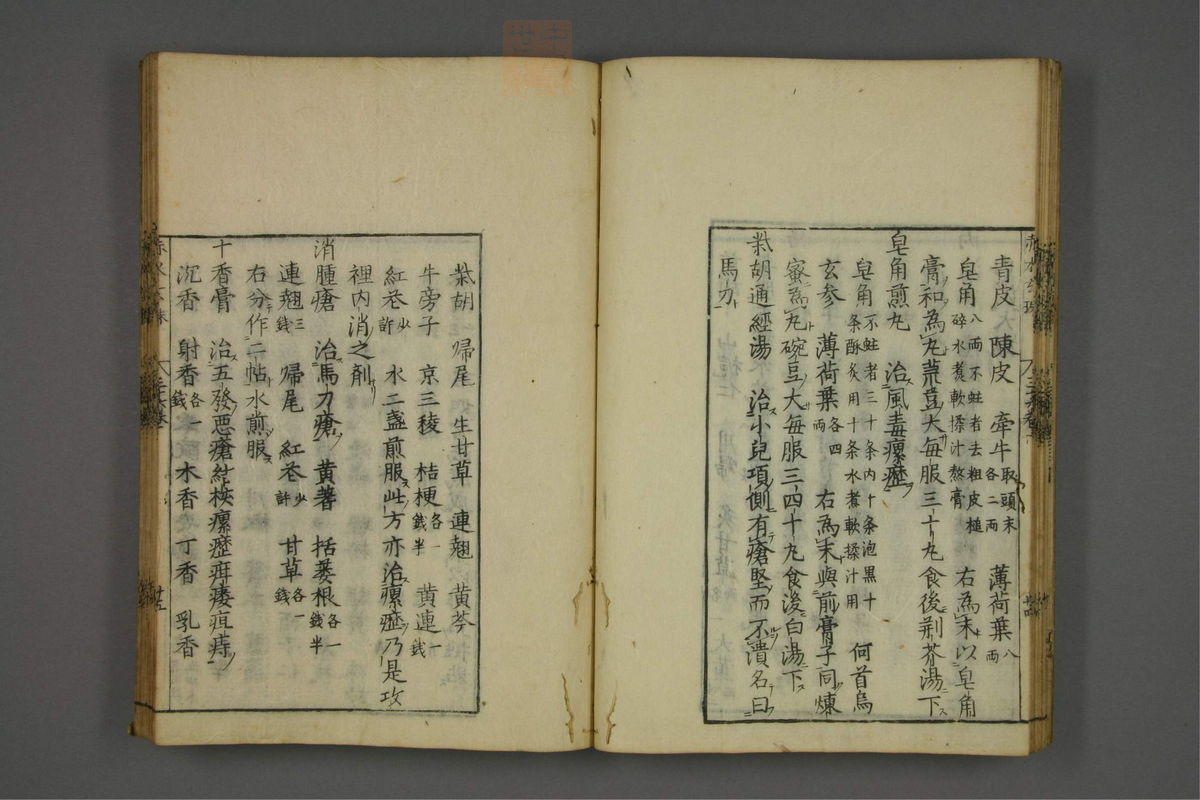 青皮 陳皮 牽牛取頭末各二兩 薄荷葉八兩
皂角八兩不蛀者去粗皮槌碎水煮軟揉汁熬膏 右為末以皂角
膏和為丸荒豆大每服三十丸食後荊芥湯下
皂角煎丸 治風毒瘰癧
皂角不蛀者三十条内十条泡黑十条酥炙用十条水煮軟揉汁用 何首烏
玄参 薄荷葉各四兩 右為末與前膏子同煉
蜜為丸碗豆大每服三四十丸食後白湯下
柴胡通經湯 治小兒項側有瘡堅而不潰名曰
馬刀
柴胡 歸尾 生甘草 連翹 黄芩
牛旁子 京三稜 桔梗各一錢半 黄連一錢
紅花少許 水二盞煎服此方亦治瘰癧乃是攻
裡内消之剤
消腫瘡 治馬刀瘡 黄蓍 括蔞根各一錢半
連翹三錢 歸尾 紅花少許 甘草各一錢
右分作二帖水煎服
十香膏 治五發悪瘡結核瘰癧疳瘻疽痔
沉香 射香各一錢 木香 丁香 乳香